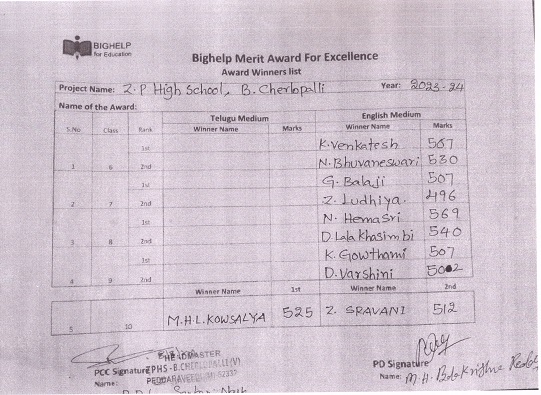 BIGHELP
for Education
Bighelp Merit Award For Excellence
Award Winners list
Project Name: Z.P High School, B. Cherlopalli Year: 2023-24
Name of the Award:
Telugu Medium English Medium
S.No Class Rank Winner Name Marks Winner Name Marks
1st K.Venkatesh 567
1 6 2nd N.Bhuvaneswari 530
1st G.Balaji 507
2 7 2nd Z.Ludhiya. 496
1st N.HemaSri 569
3 8 2nd D.Lalakhasimbi 540
1st K.Gowthami 507
4 9 2nd D.Varshini 502
Winner Name 1st Winner Name 2nd
5 10 M.H.L.KOWSALYA 525 Z. SRAVANI 512
HEADMASTER
PCC Signature ZPHS - B.CHERLOPALLE(V) PD Signature
Name: M.H. Balakrishna Reddy